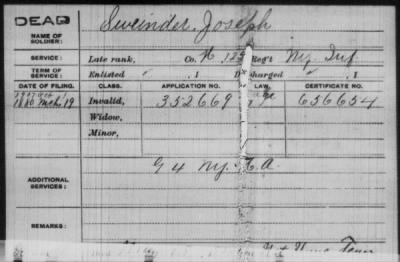 DEAD
Sweinder, Joseph
NAME OF SOLDIER:
SERVICE: Late rank, Co. H 129 Reg't Ny. Inf.
TERM OF SERVICE: Enlisted , 1 D charged , 1
DATE OF FILING. CLASS. APPLICATION NO. LAW. CERTIFICATE NO.
1880 Mch 19 Invalid, 352669 656654
Widow,
Minor,
ADDITIONAL SERVICES: G 4 Ny. H. A.
REMARKS: